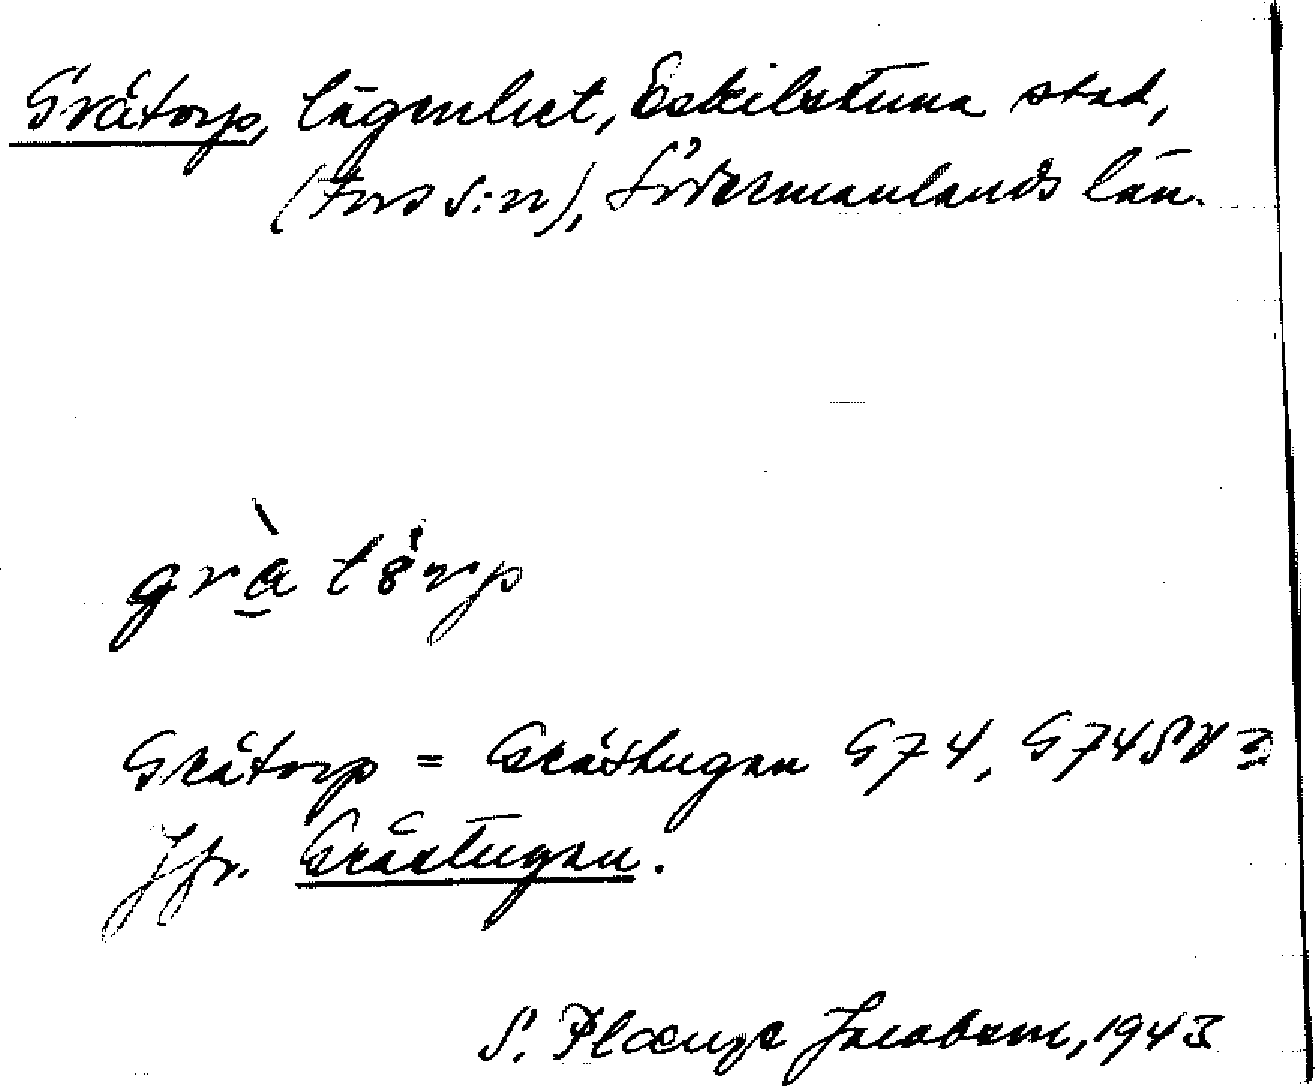 Gråtorp, lägenhet, Eskilstuna stad,
(Fors s:n), Södermanlands län.
grà tórp
Gråtorp = Gråstugan G74, G74SV
Jfr. Gråstugan.
S. Plœnge Jacobson, 1943